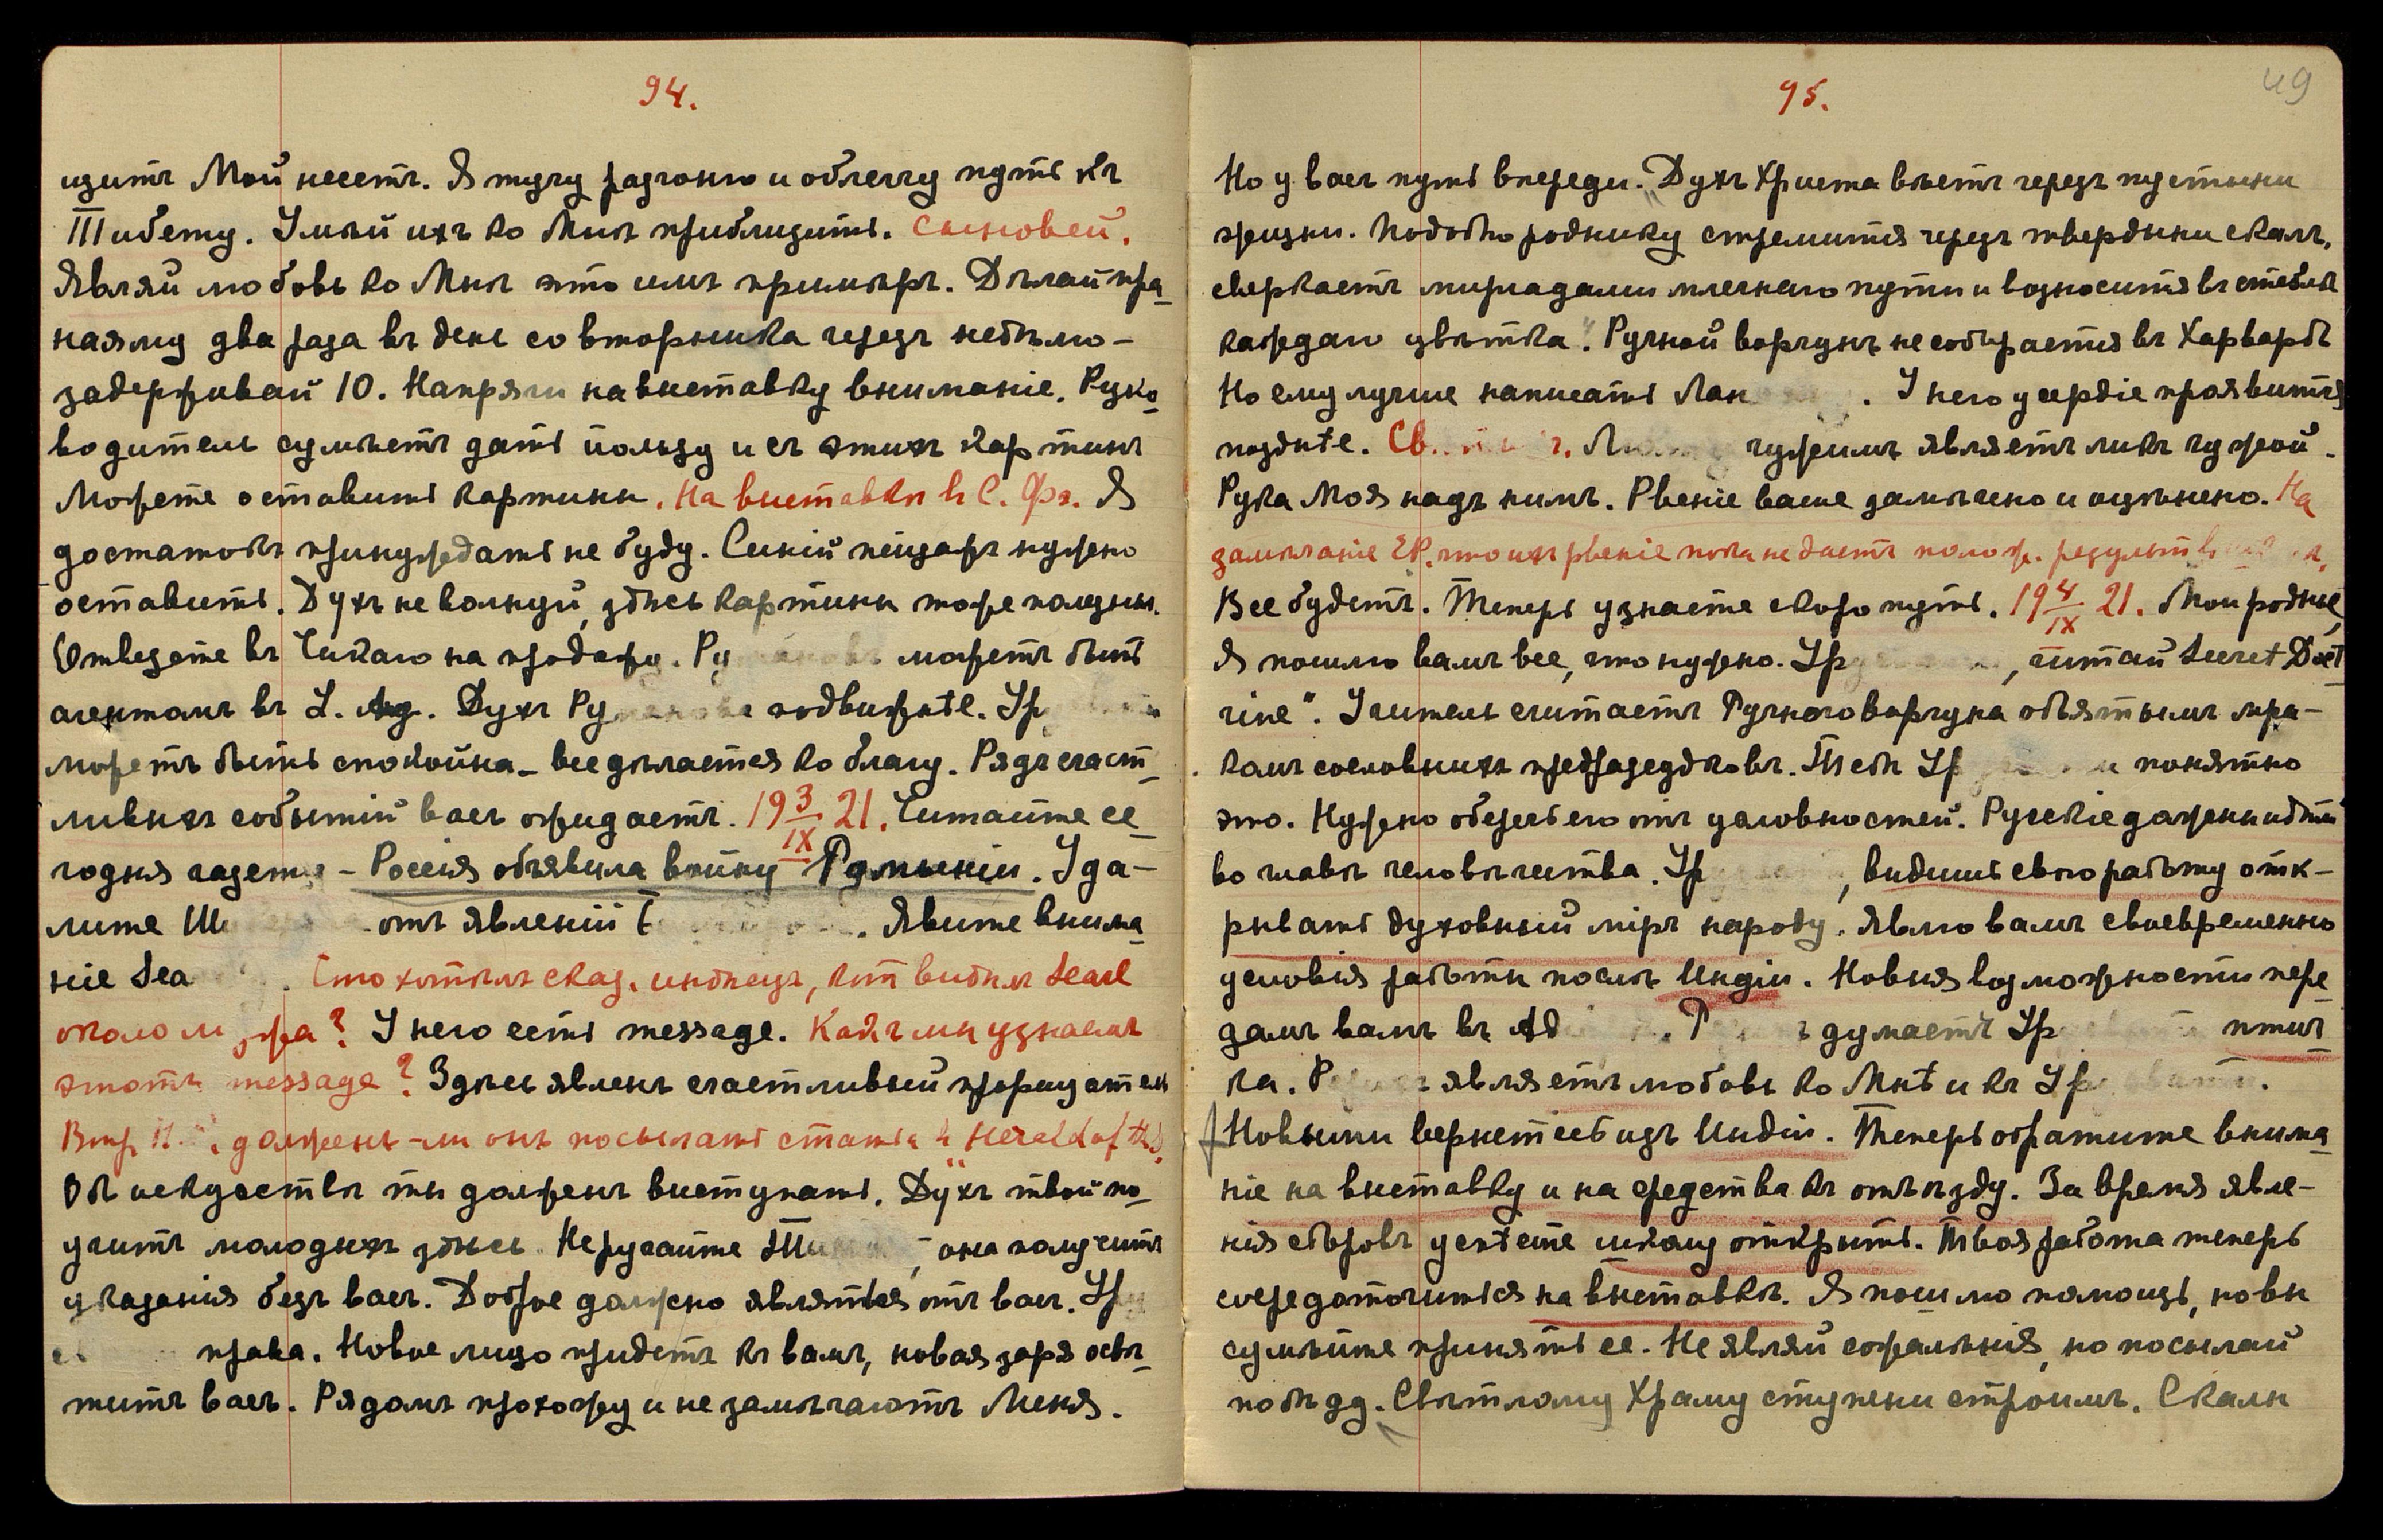 94.
щитъ Мой несетъ. Я тучу разгоню и облегчу путь къ
Тибету. Умѣй ихъ ко Мнѣ приблизить. Сыновей.
Являй любовь ко Мнѣ это имъ примѣръ. Дѣлай пра-
наяму два раза въ день со вторника черезъ недѣлю –
задерживай 10. Напряги на выставку вниманіе. Руко-
водитель сумѣетъ дать пользу и съ этихъ картинъ
Можете оставить картины. На выставкѣ в С. Фр. Я
достатокъ принуждать не буду. Синій пейзажъ нужно
оставить. Духъ не волнуй, здѣсь картины тоже полезны.
Отвезете въ Чикаго на продажу. Ру можетъ быть
агентомъ въ L. Ang. Духъ Ру подвижнѣе. Ур
можетъ быть спокойна – все дѣлается ко благу. Рядъ счаст-
ливыхъ событій васъ ожидаетъ. 19 3/IX 21. Читайте се-
годня газеты – Россія объявила войну Румыніи. Уда-
лите Ш отъ явленій Б . Явите внима-
ніе Sea . Что хотѣлъ сказ. индѣецъ, кот видѣлъ Searl
около м ? У него есть message. Какъ мы узнаемъ
этотъ message? Здѣсь явленъ счастливый прорицатель
долженъ-ли онъ посылать статьи в "Herald of the
Объ искусствѣ ты долженъ выступать. Духъ твой по-
учитъ молодыхъ здѣсь. Не ругайте , она получитъ
указанія безъ васъ. Доброе должно являться отъ васъ. Ур
права. Новое лицо придетъ къ вамъ, новая заря освѣ-
титъ васъ. Рядомъ прохожу и не замѣчаютъ Меня.
95.
49
Но у васъ путь впереди. Духъ Христа вѣетъ черезъ пустыни
жизни. Подобно роднику стремится черезъ твердыни скалъ,
сверкаетъ миріадами млечнаго пути и возносится въ стеблѣ
каждаго цвѣтка". Ручной ворчунъ не собирается въ Харвардъ
Но ему лучше написать Лан . У него усердіе проявится
позднѣе. Св чужимъ являетъ ликъ чужой.
Рука Моя надъ нимъ. Рвеніе ваше замѣчено и оцѣнено. На
замѣчаніе ЕР, что ихъ рвеніе пока не даетъ полож. результ
Все будетъ. Теперь узнаете скоро путь. 19 4/IX 21. Мои родные,
Я пошлю вамъ все, что нужно. Ур , читай Secret Doct-
rine". Учитель считаетъ Ручного ворчуна объятымъ мра-
комъ сословныхъ предразсудковъ. Тебѣ Ур понятно
это. Нужно оберечь его отъ условностей. Русскіе должны идти
во главѣ человѣчества. Ур , видишь свою работу отк-
рывать духовный міръ народу. Являю вамъ своевременно
условія работы послѣ Индіи. Новыя возможности пере-
дамъ вамъ въ Ad . Р думаетъ Ур птич-
ка. Р являетъ любовь ко Мнѣ и къ Ур .
Новыми вернетесь изъ Индіи. Теперь обратите внима-
ніе на выставку и на средства къ отъѣзду. За время явле-
нія сборовъ успѣете школу открыть. Твоя работа теперь
сосредоточится на выставкѣ. Я пошлю помощь, но вы
сумѣйте принять ее. Не являй сожалѣнія, но посылай
побѣду. Свѣтлому Храму ступени строимъ. Скалы